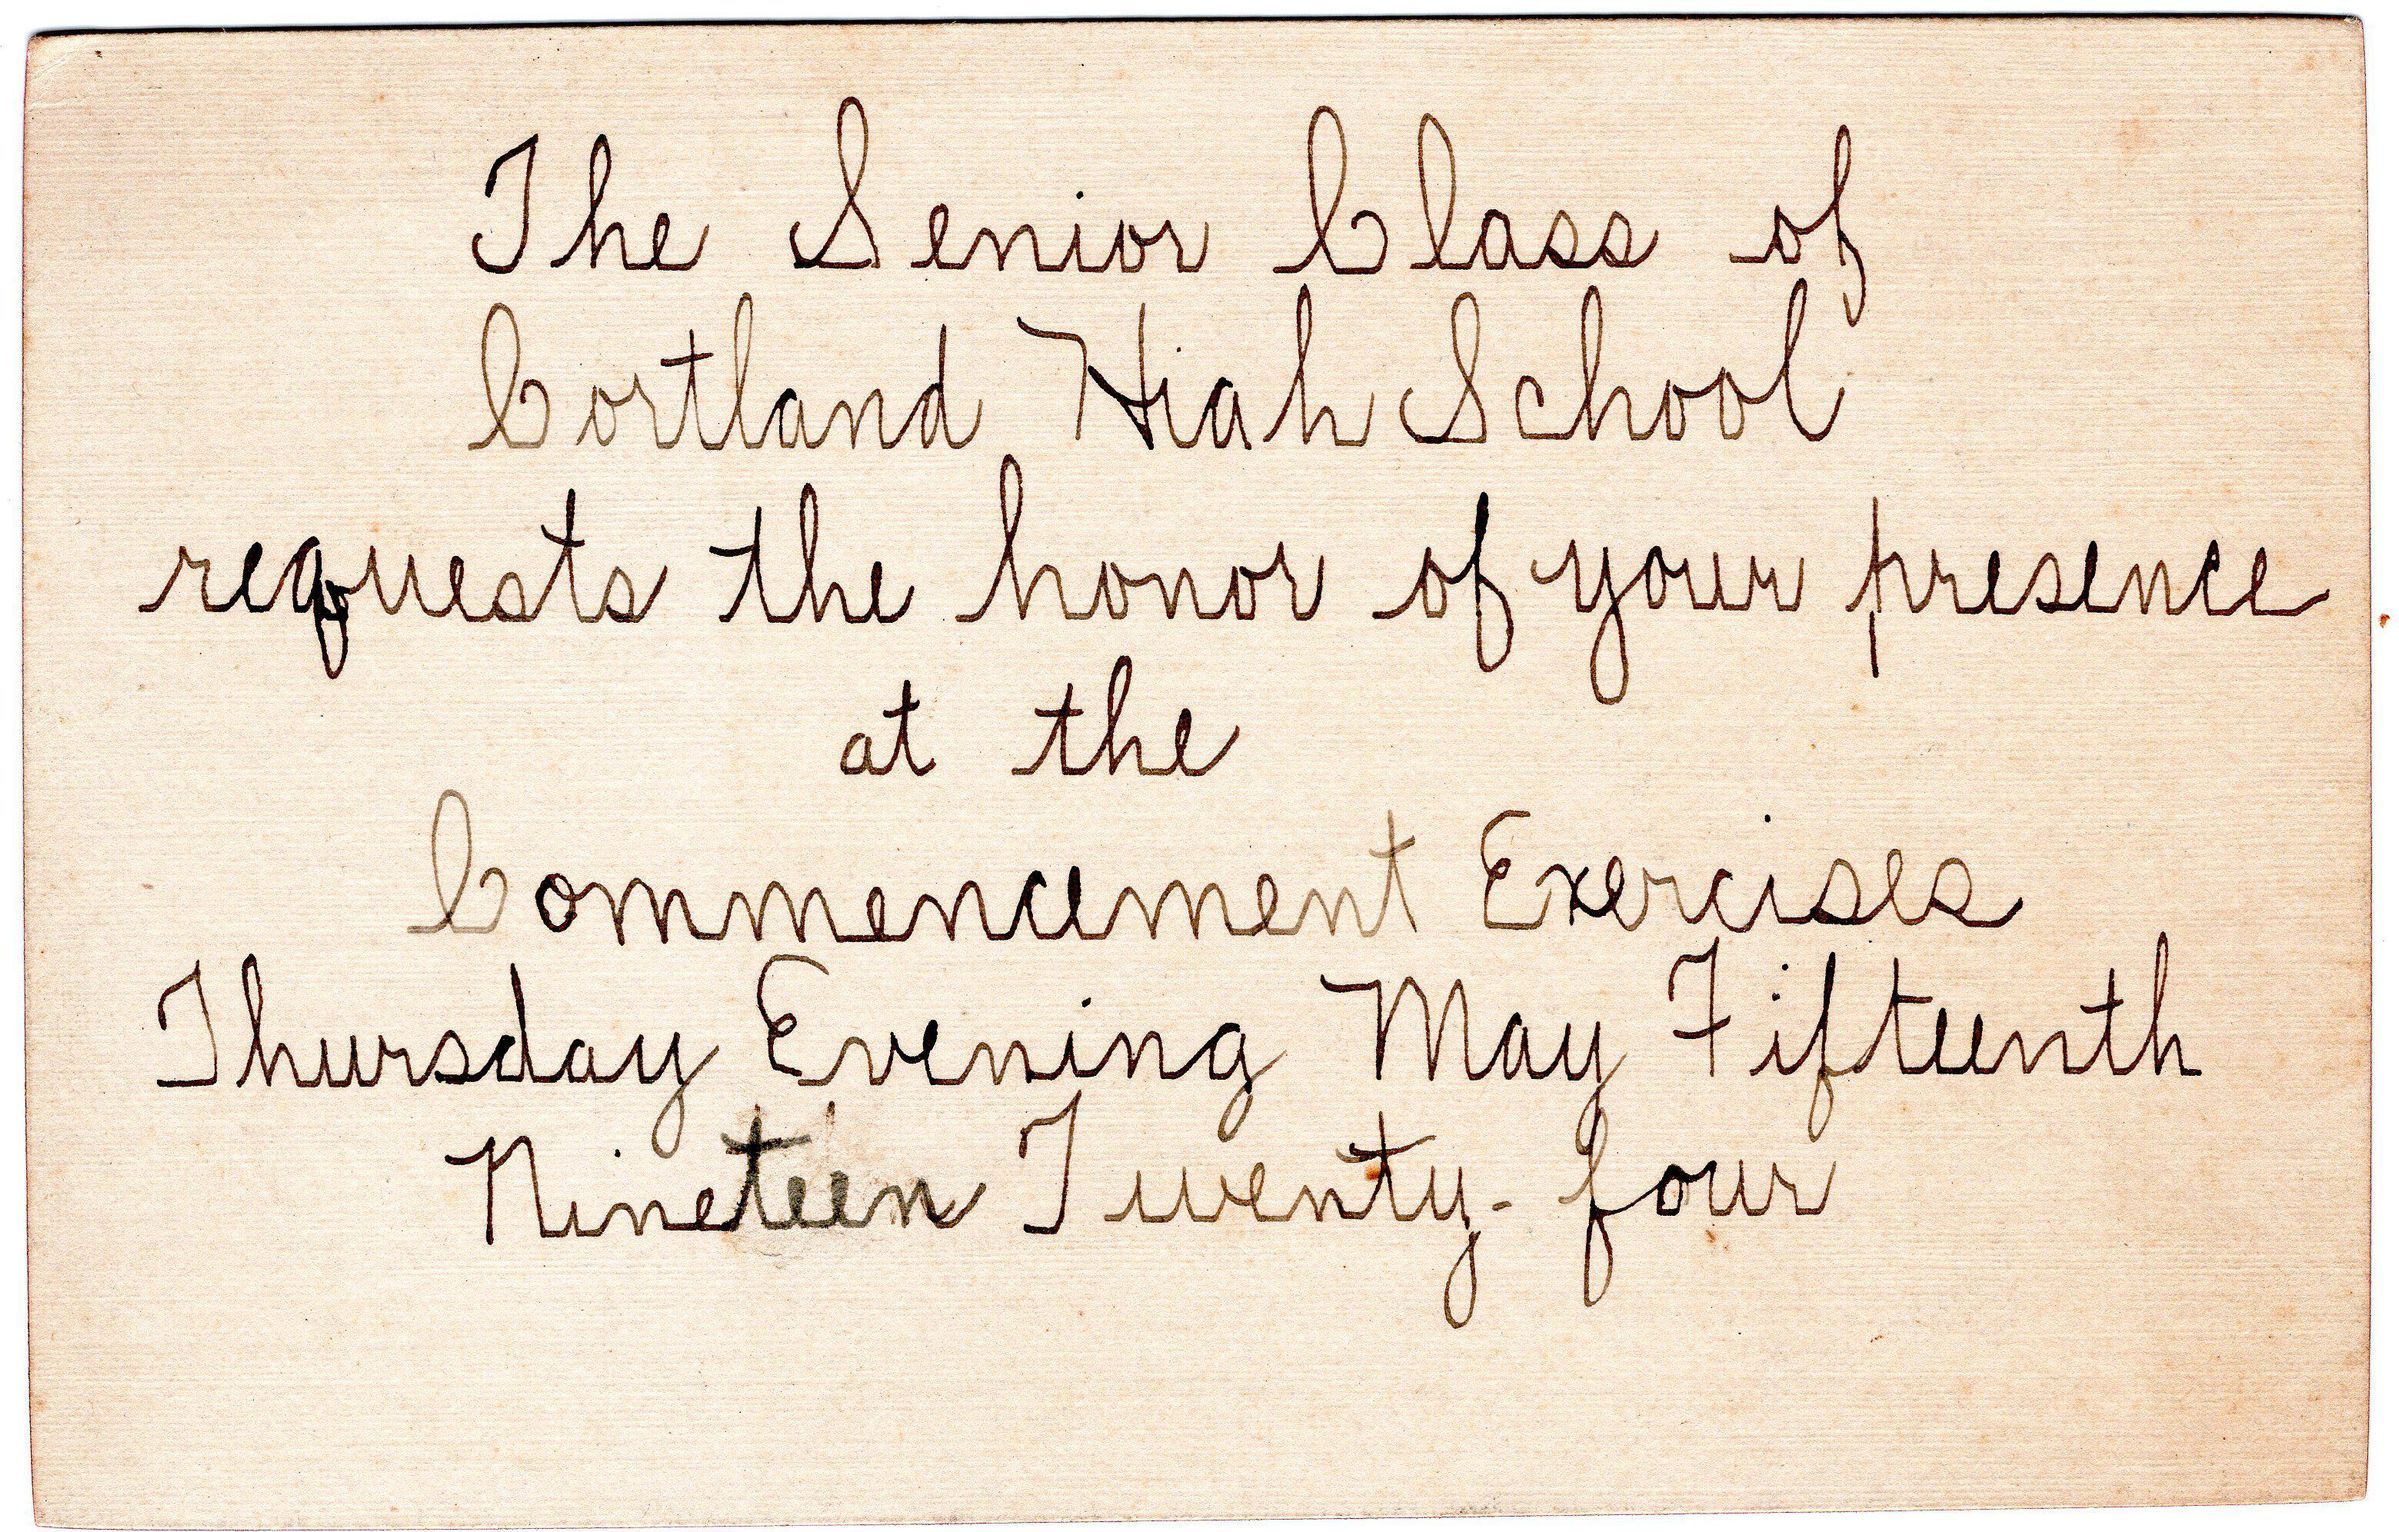 The Senior Class of
Cortland High School
requests the honor of your presence
at the
Commencement Exercises
Thursday Evening May Fifteenth
Nineteen Twenty-four